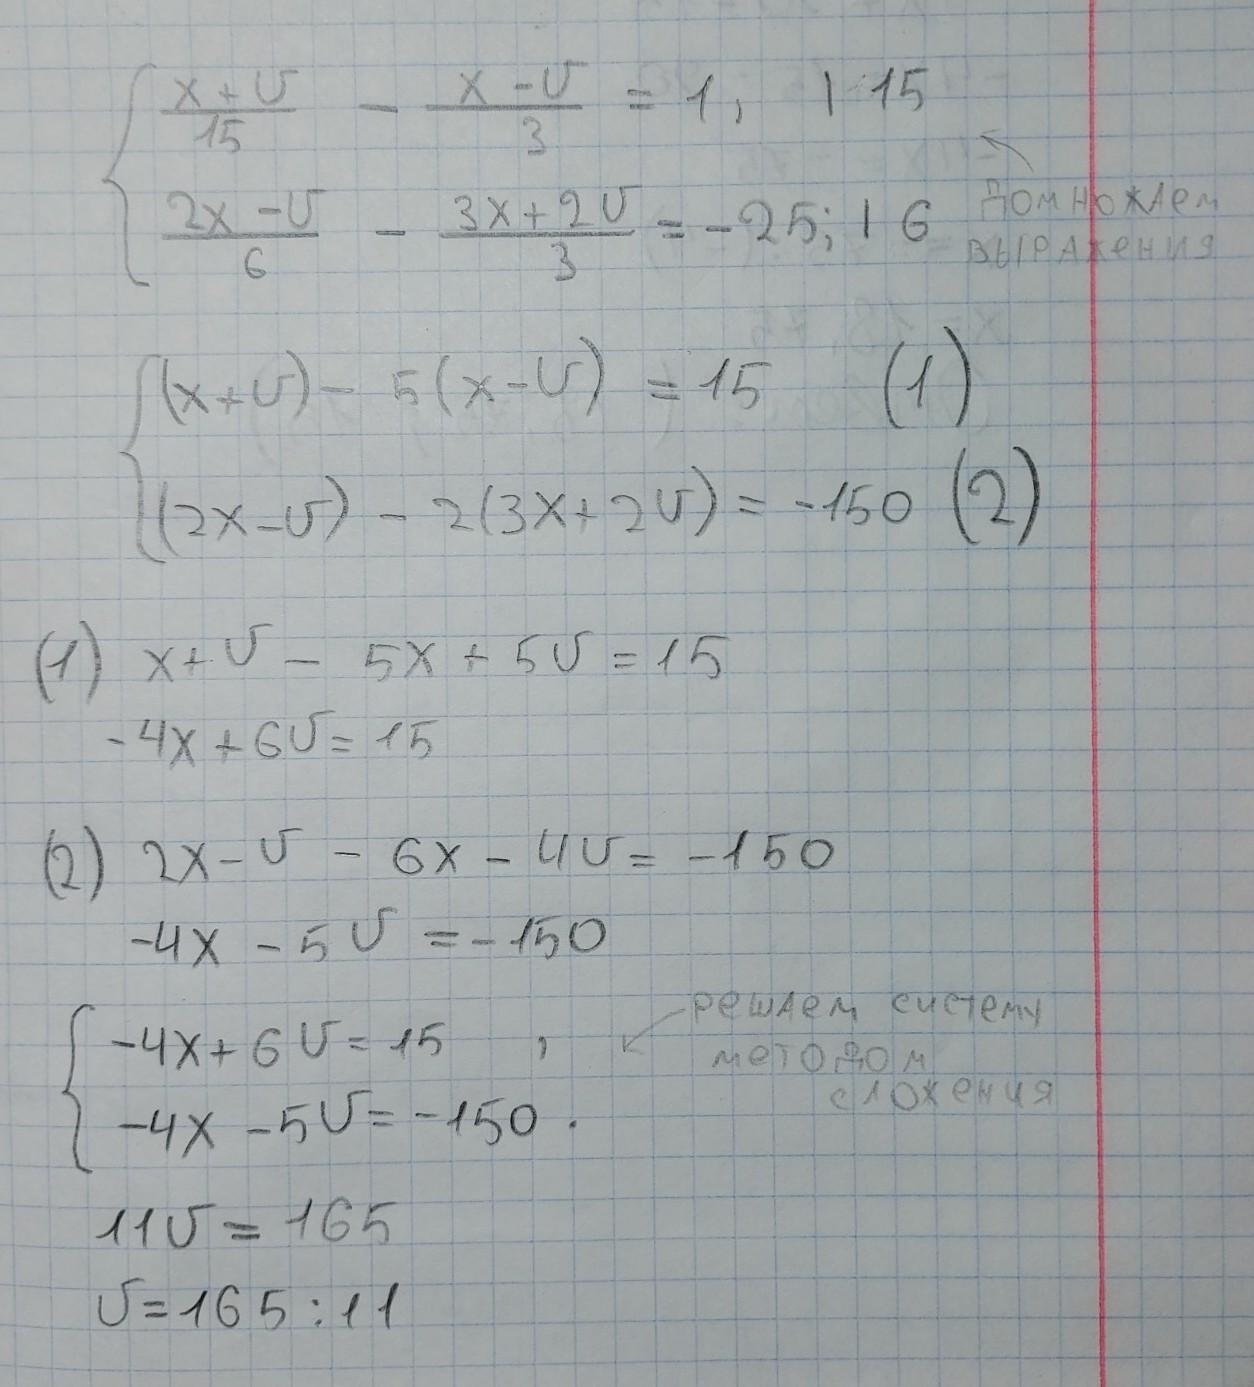 (x+v)/15 - (x-v)/3 = 1, | 15
(2x-v)/6 - (3x+2v)/3 = -25; | 6
домножаем
выражения
(x+v) - 5(x-v) = 15 (1)
(2x-v) - 2(3x+2v) = -150 (2)
(1) x+v - 5x + 5v = 15
-4x+6v = 15
(2) 2x-v - 6x - 4v = -150
-4x - 5v = -150
решаем систему
методом
сложения
-4x+6v = 15 ,
-4x - 5v = -150 .
11v = 165
v = 165 : 11